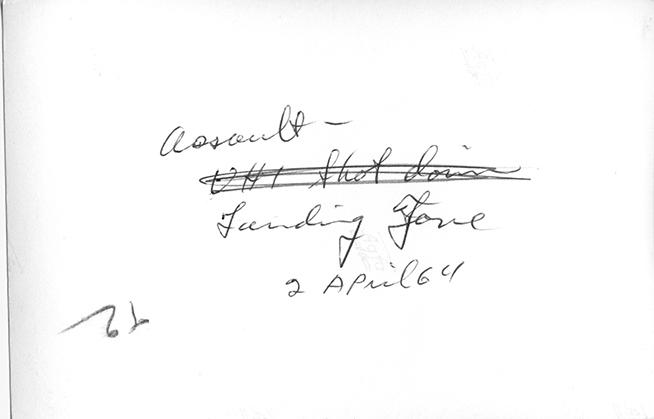 Assault -
UH1 Shot down
Landing Zone
2 April 64